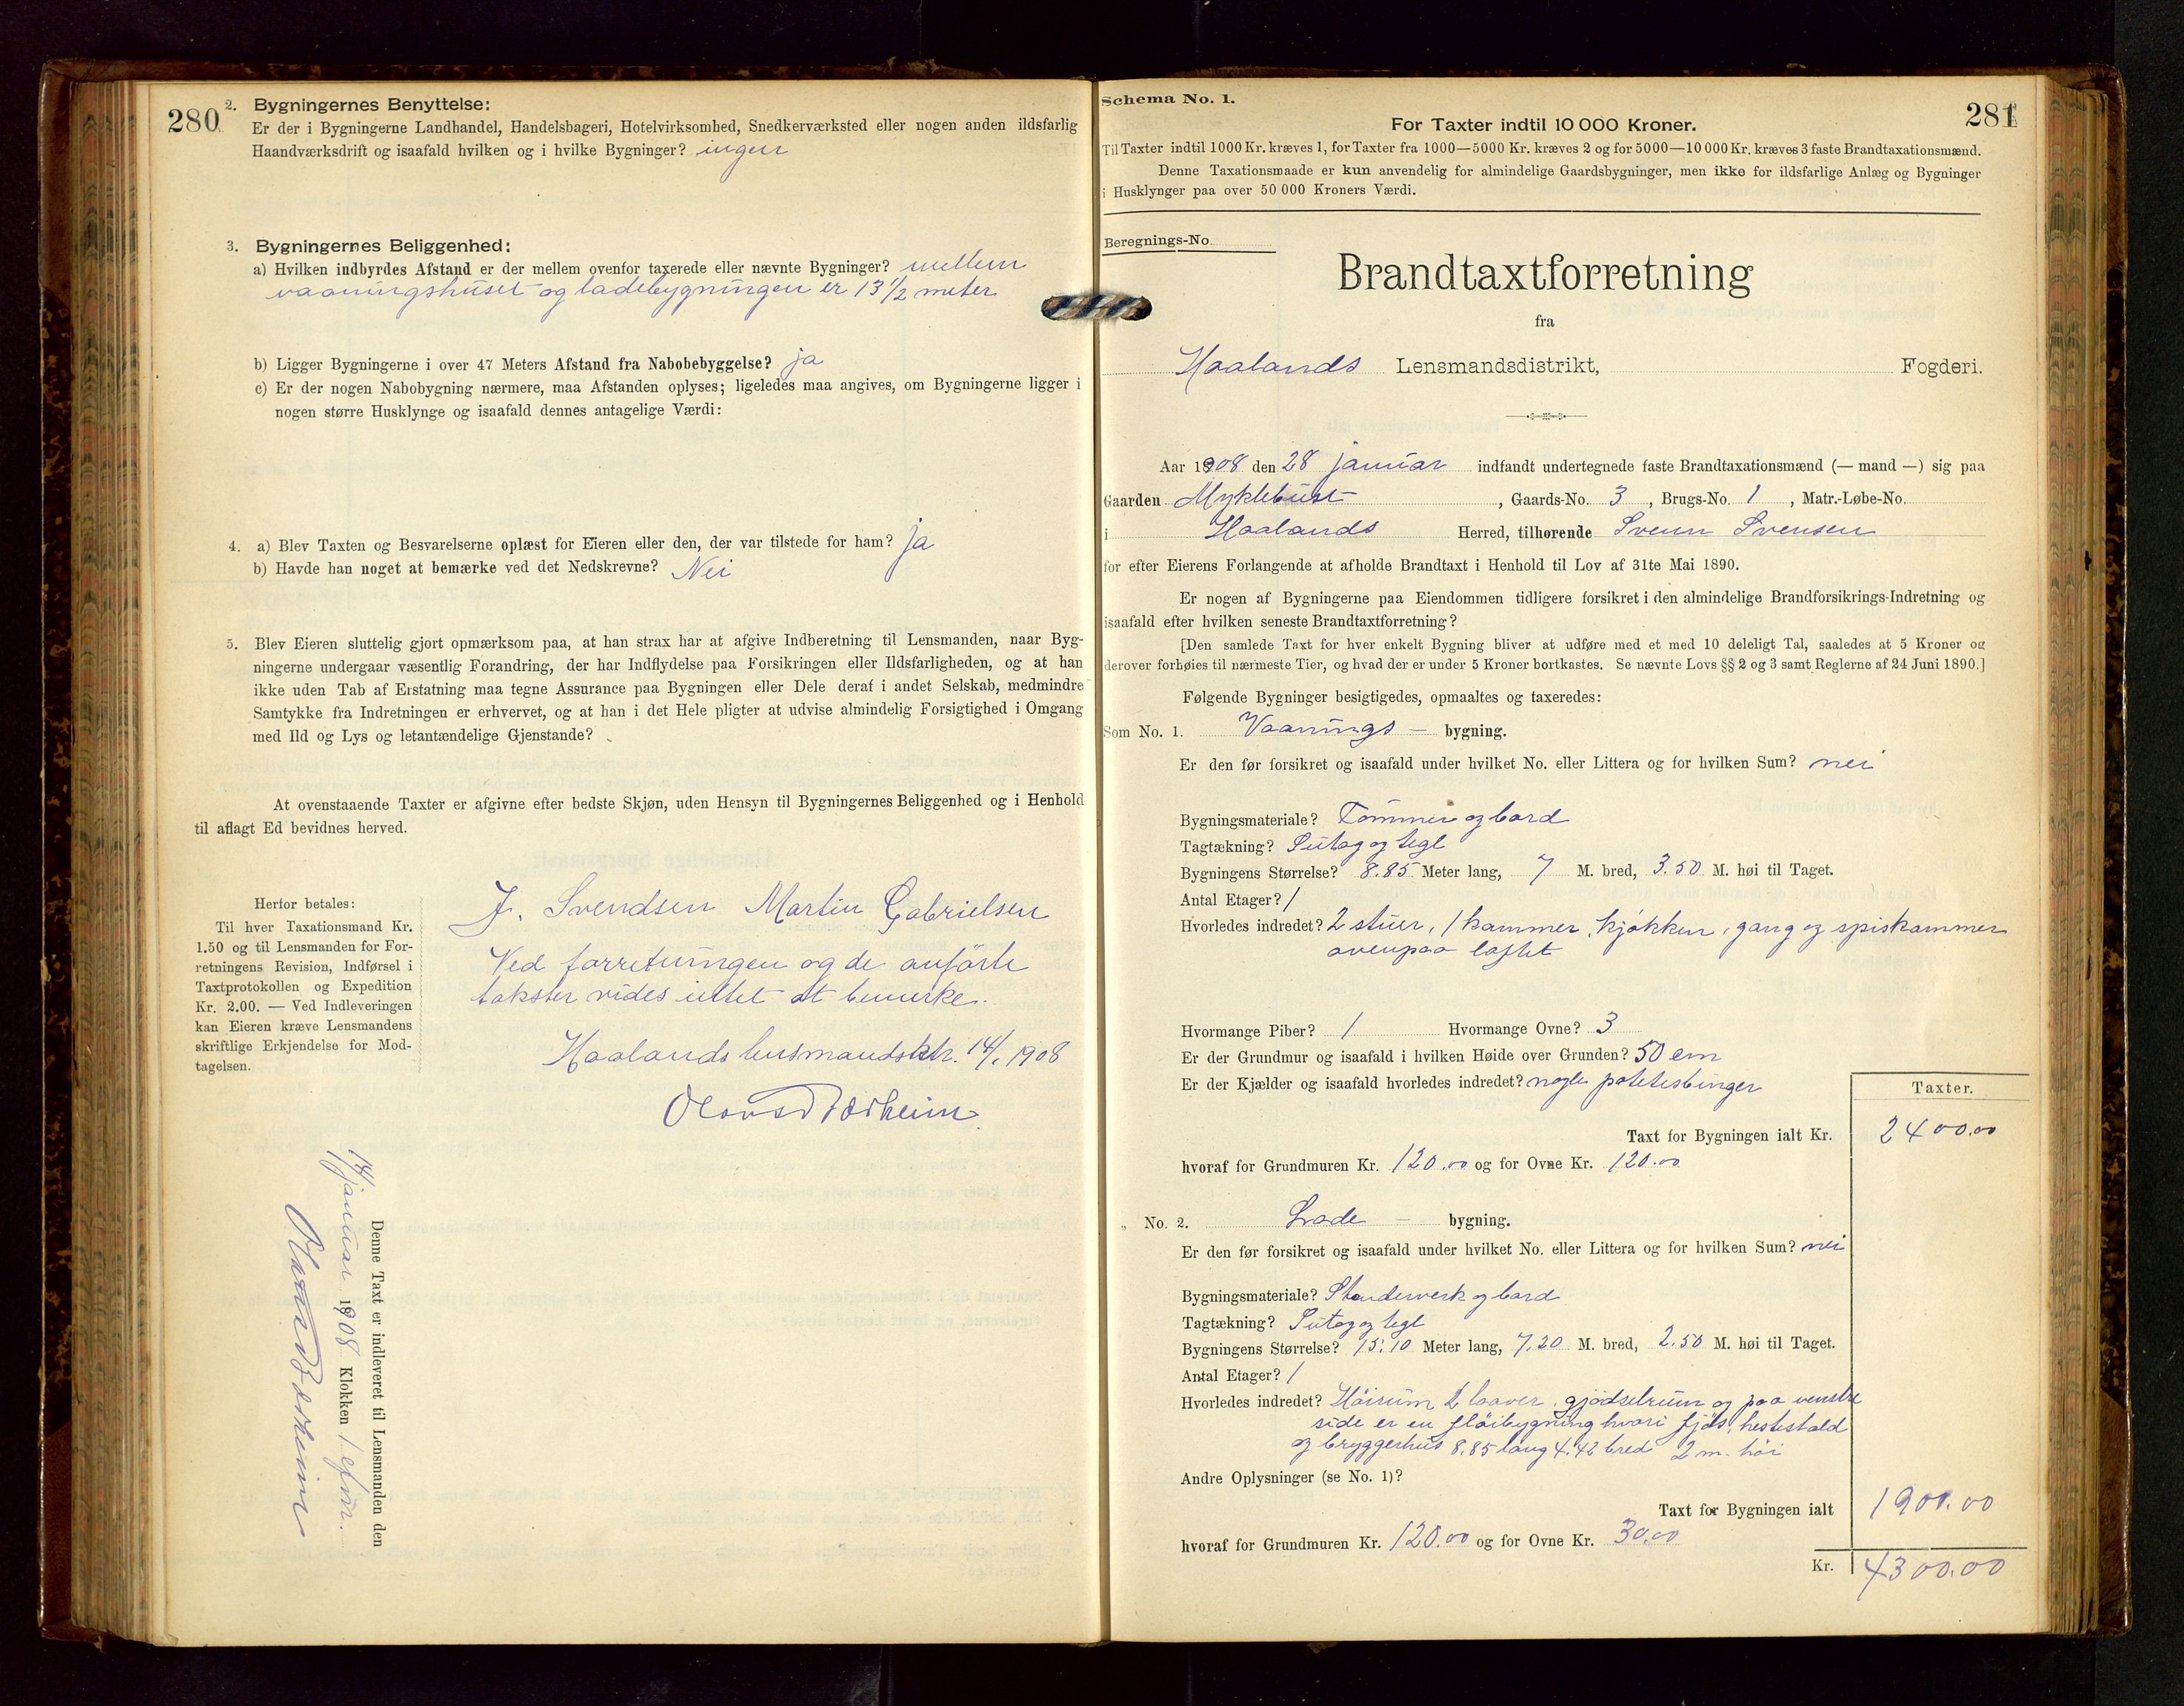 280
2. Bygningernes Benyttelse:
Er der i Bygningerne Landhandel, Handelsbageri, Hotelvirksomhed, Snedkerværksted eller nogen anden ildsfarlig
Haandværksdrift og isaafald hvilken og i hvilke Bygninger? ingen
3. Bygningernes Beliggenhed:
a) Hvilken indbyrdes Afstand er der mellem ovenfor taxerede eller nævnte Bygninger? mellem
vaaningshuset og ladebygningen er 13 1/2 meter
b) Ligger Bygningerne i over 47 Meters Afstand fra Nabobebyggelse? ja
c) Er der nogen Nabobygning nærmere, maa Afstanden oplyses; ligeledes maa angives, om Bygningerne ligger i
nogen større Husklynge og isaafald dennes antagelige Værdi:
4. a) Blev Taxten og Besvarelserne oplæst for Eieren eller den, der var tilstede for ham? ja
b) Havde han noget at bemærke ved det Nedskrevne? Nei
5. Blev Eieren sluttelig gjort opmærksom paa, at han strax har at afgive Indberetning til Lensmanden, naar Byg-
ningerne undergaar væsentlig Forandring, der har Indflydelse paa Forsikringen eller Ildsfarligheden, og at han
ikke uden Tab af Erstatning maa tegne Assurance paa Bygningen eller Dele deraf i andet Selskab, medmindre
Samtykke fra Indretningen er erhvervet, og at han i det Hele pligter at udvise almindelig Forsigtighed i Omgang
med Ild og Lys og letantændelige Gjenstande?
At ovenstaaende Taxter er afgivne efter bedste Skjøn, uden Hensyn til Bygningernes Beliggenhed og i Henhold
til aflagt Ed bevidnes herved.
Herfor betales:
Til hver Taxationsmand Kr.
1.50 og til Lensmanden for For-
retningens Revision, Indførsel i
Taxtprotokollen og Expedition
Kr. 2.00. — Ved Indleveringen
kan Eieren kræve Lensmandens
skriftlige Erkjendelse for Mod-
tagelsen.
J. Svendsen Martin Gabrielsen
Ved forretningen og de anførte
takster vides intet at bemerke.
Haalands lensmandsktr. 14/1 1908
Denne Taxt er indleveret til Lensmanden den
14 januar 1908 Klokken 1 efm.
Schema No. 1.
281
For Taxter indtil 10 000 Kroner.
Til Taxter indtil 1000 Kr. kræves 1, for Taxter fra 1000—5000 Kr. kræves 2 og for 5000—10 000 Kr. kræves 3 faste Brandtaxationsmænd.
Denne Taxationsmaade er kun anvendelig for almindelige Gaardsbygninger, men ikke for ildsfarlige Anlæg og Bygninger
i Husklynger paa over 50 000 Kroners Værdi.
Beregnings-No.
Brandtaxtforretning
fra
Haalands Lensmandsdistrikt, Fogderi.
Aar 1908 den 28 januar indfandt undertegnede faste Brandtaxationsmænd (— mand —) sig paa
Gaarden Myklebust, Gaards-No. 3, Brugs-No. 1, Matr.-Løbe-No.
i Haalands Herred, tilhørende Svenn Svensen
for efter Eierens Forlangende at afholde Brandtaxt i Henhold til Lov af 31te Mai 1890.
Er nogen af Bygningerne paa Eiendommen tidligere forsikret i den almindelige Brandforsikrings-Indretning og
isaafald efter hvilken seneste Brandtaxtforretning?
[Den samlede Taxt for hver enkelt Bygning bliver at udføre med et med 10 deleligt Tal, saaledes at 5 Kroner og
derover forhøies til nærmeste Tier, og hvad der er under 5 Kroner bortkastes. Se nævnte Lovs §§ 2 og 3 samt Reglerne af 24 Juni 1890.]
Følgende Bygninger besigtigedes, opmaaltes og taxeredes:
Som No. 1. Vaanings — bygning.
Er den før forsikret og isaafald under hvilket No. eller Littera og for hvilken Sum? nei
Bygningsmateriale? Tømmer og bord
Tagtækning? Sutag og tegl
Bygningens Størrelse? 8.85 Meter lang, 7 M. bred, 3.50 M. høi til Taget.
Antal Etager? 1
Hvorledes indredet? 2 stuer, 1 kammer, kjøkken, gang og spiskammer
ovenpaa loftet
Hvormange Piber? 1 Hvormange Ovne? 3
Er der Grundmur og isaafald i hvilken Høide over Grunden? 50 cm
Er der Kjælder og isaafald hvorledes indredet? nogle potetesbinger
Taxter.
Taxt for Bygningen ialt Kr. 2400.00
hvoraf for Grundmuren Kr. 120.00 og for Ovne Kr. 120.00
„ No. 2. Lade — bygning.
Er den før forsikret og isaafald under hvilket No. eller Littera og for hvilken Sum? nei
Bygningsmateriale? Standerverk og bord
Tagtækning? Sutag og tegl
Bygningens Størrelse? 15.10 Meter lang, 7.20 M. bred, 2.50 M. høi til Taget.
Antal Etager? 1
Hvorledes indredet? Høirum 2 laaver, gjødselrum og paa venstre
side er en fløibygning hvori fjøs, hestestald
og bryggerhus 8.85 lang 4.42 bred 2 m. høi
Andre Oplysninger (se No. 1)?
Taxt for Bygningen ialt 1900.00
hvoraf for Grundmuren Kr. 120.00 og for Ovne Kr. 30.00
Kr. 4300.00